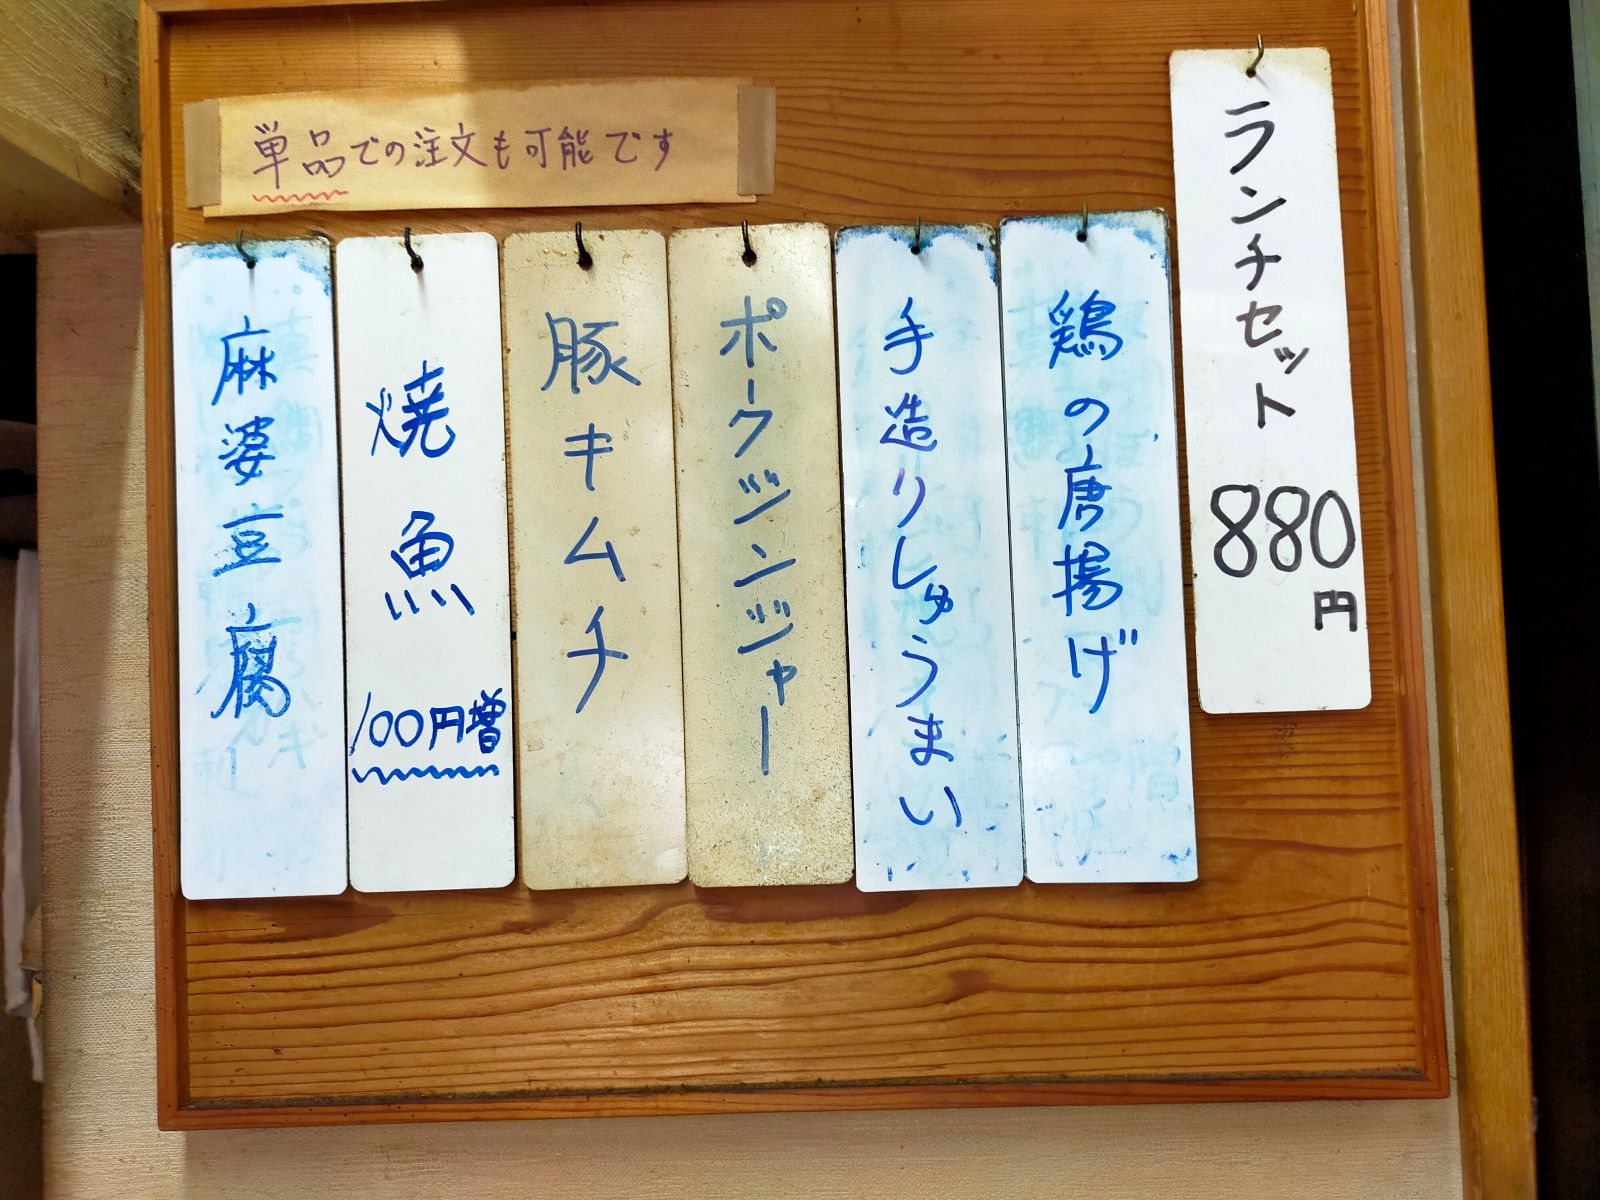 単品での注文も可能です
ランチセット 880円
鶏の唐揚げ
手造りしゅうまい
ポークジンジャー
豚キムチ
焼魚 100円増
麻婆豆腐